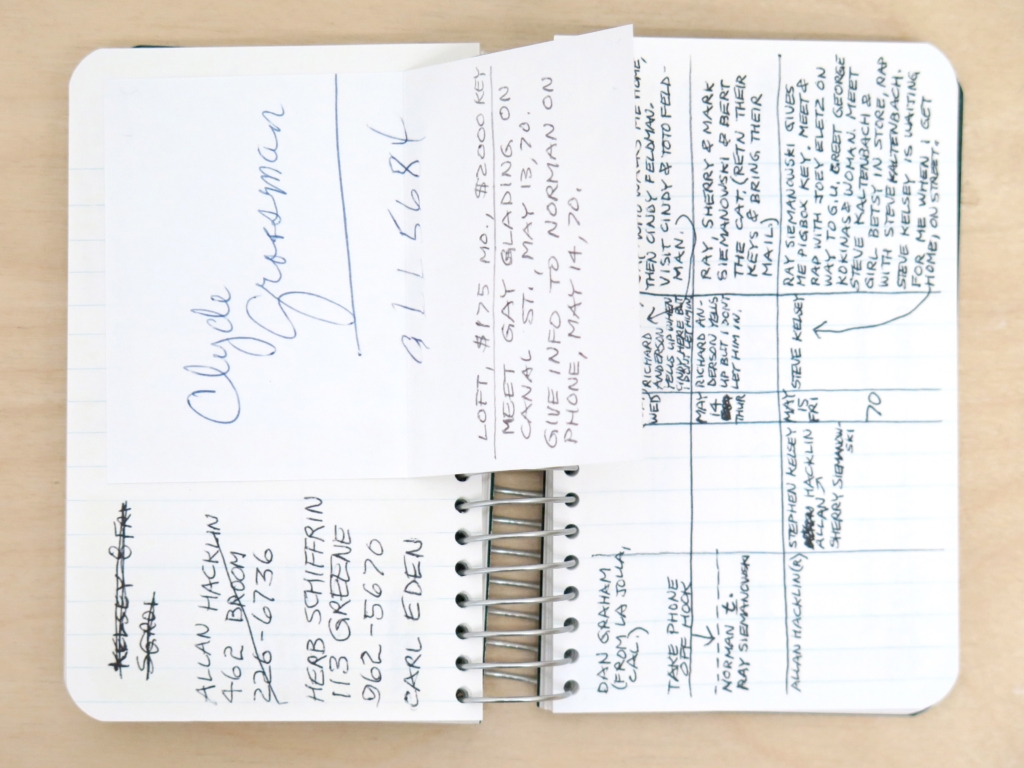 Clyde
Grossman
91L5684
LOFT, $175 MO., $2000 KEY
MEET GAY GLADING, ON
CANAL ST., MAY 13, 70.
GIVE INFO TO NORMAN ON
PHONE, MAY 14, 70.
KELSEY
ALLAN HACKLIN
462 BROOM
226-6736
HERB SCHIFFRIN
113 GREENE
962-5670
CARL EDEN
DAN GRAHAM
(FROM LA JOLLA,
CAL.)
TAKE PHONE
OFF HOOK
WED
RICHARD
ANDERSON
YELLS UP WHEN
CINDY HERE BUT
THEN CINDY FELDMAN.
VISIT CINDY & TOTO FELD-
MAN.)
NORMAN t.
RAY SIEMANOWSKI
MAY
14
THUR
RICHARD AN-
DERSON YELLS
UP BUT I DON'T
LET HIM IN.
RAY, SHERRY & MARK
SIEMANOWSKI & BERT
THE CAT, (RETN THEIR
KEYS & BRING THEIR
MAIL)
ALLAN HACKLIN(R)
STEPHEN KELSEY
HACKLIN
ALLAN
SHERRY SIEMANOW-
SKI
MAY
15
FRI
70
STEVE KELSEY
RAY SIEMANOWSKI GIVES
ME PIGBOX KEY. MEET &
RAP WITH JOEY ELETZ ON
WAY TO G.U. GREET GEORGE
KOKINAS & WOMAN. MEET
STEVE KALTENBACH &
GIRL BETSY IN STORE, RAP
WITH STEVE KALTENBACH.
STEVE KELSEY IS WAITING
FOR ME WHEN I GET
HOME, ON STREET.